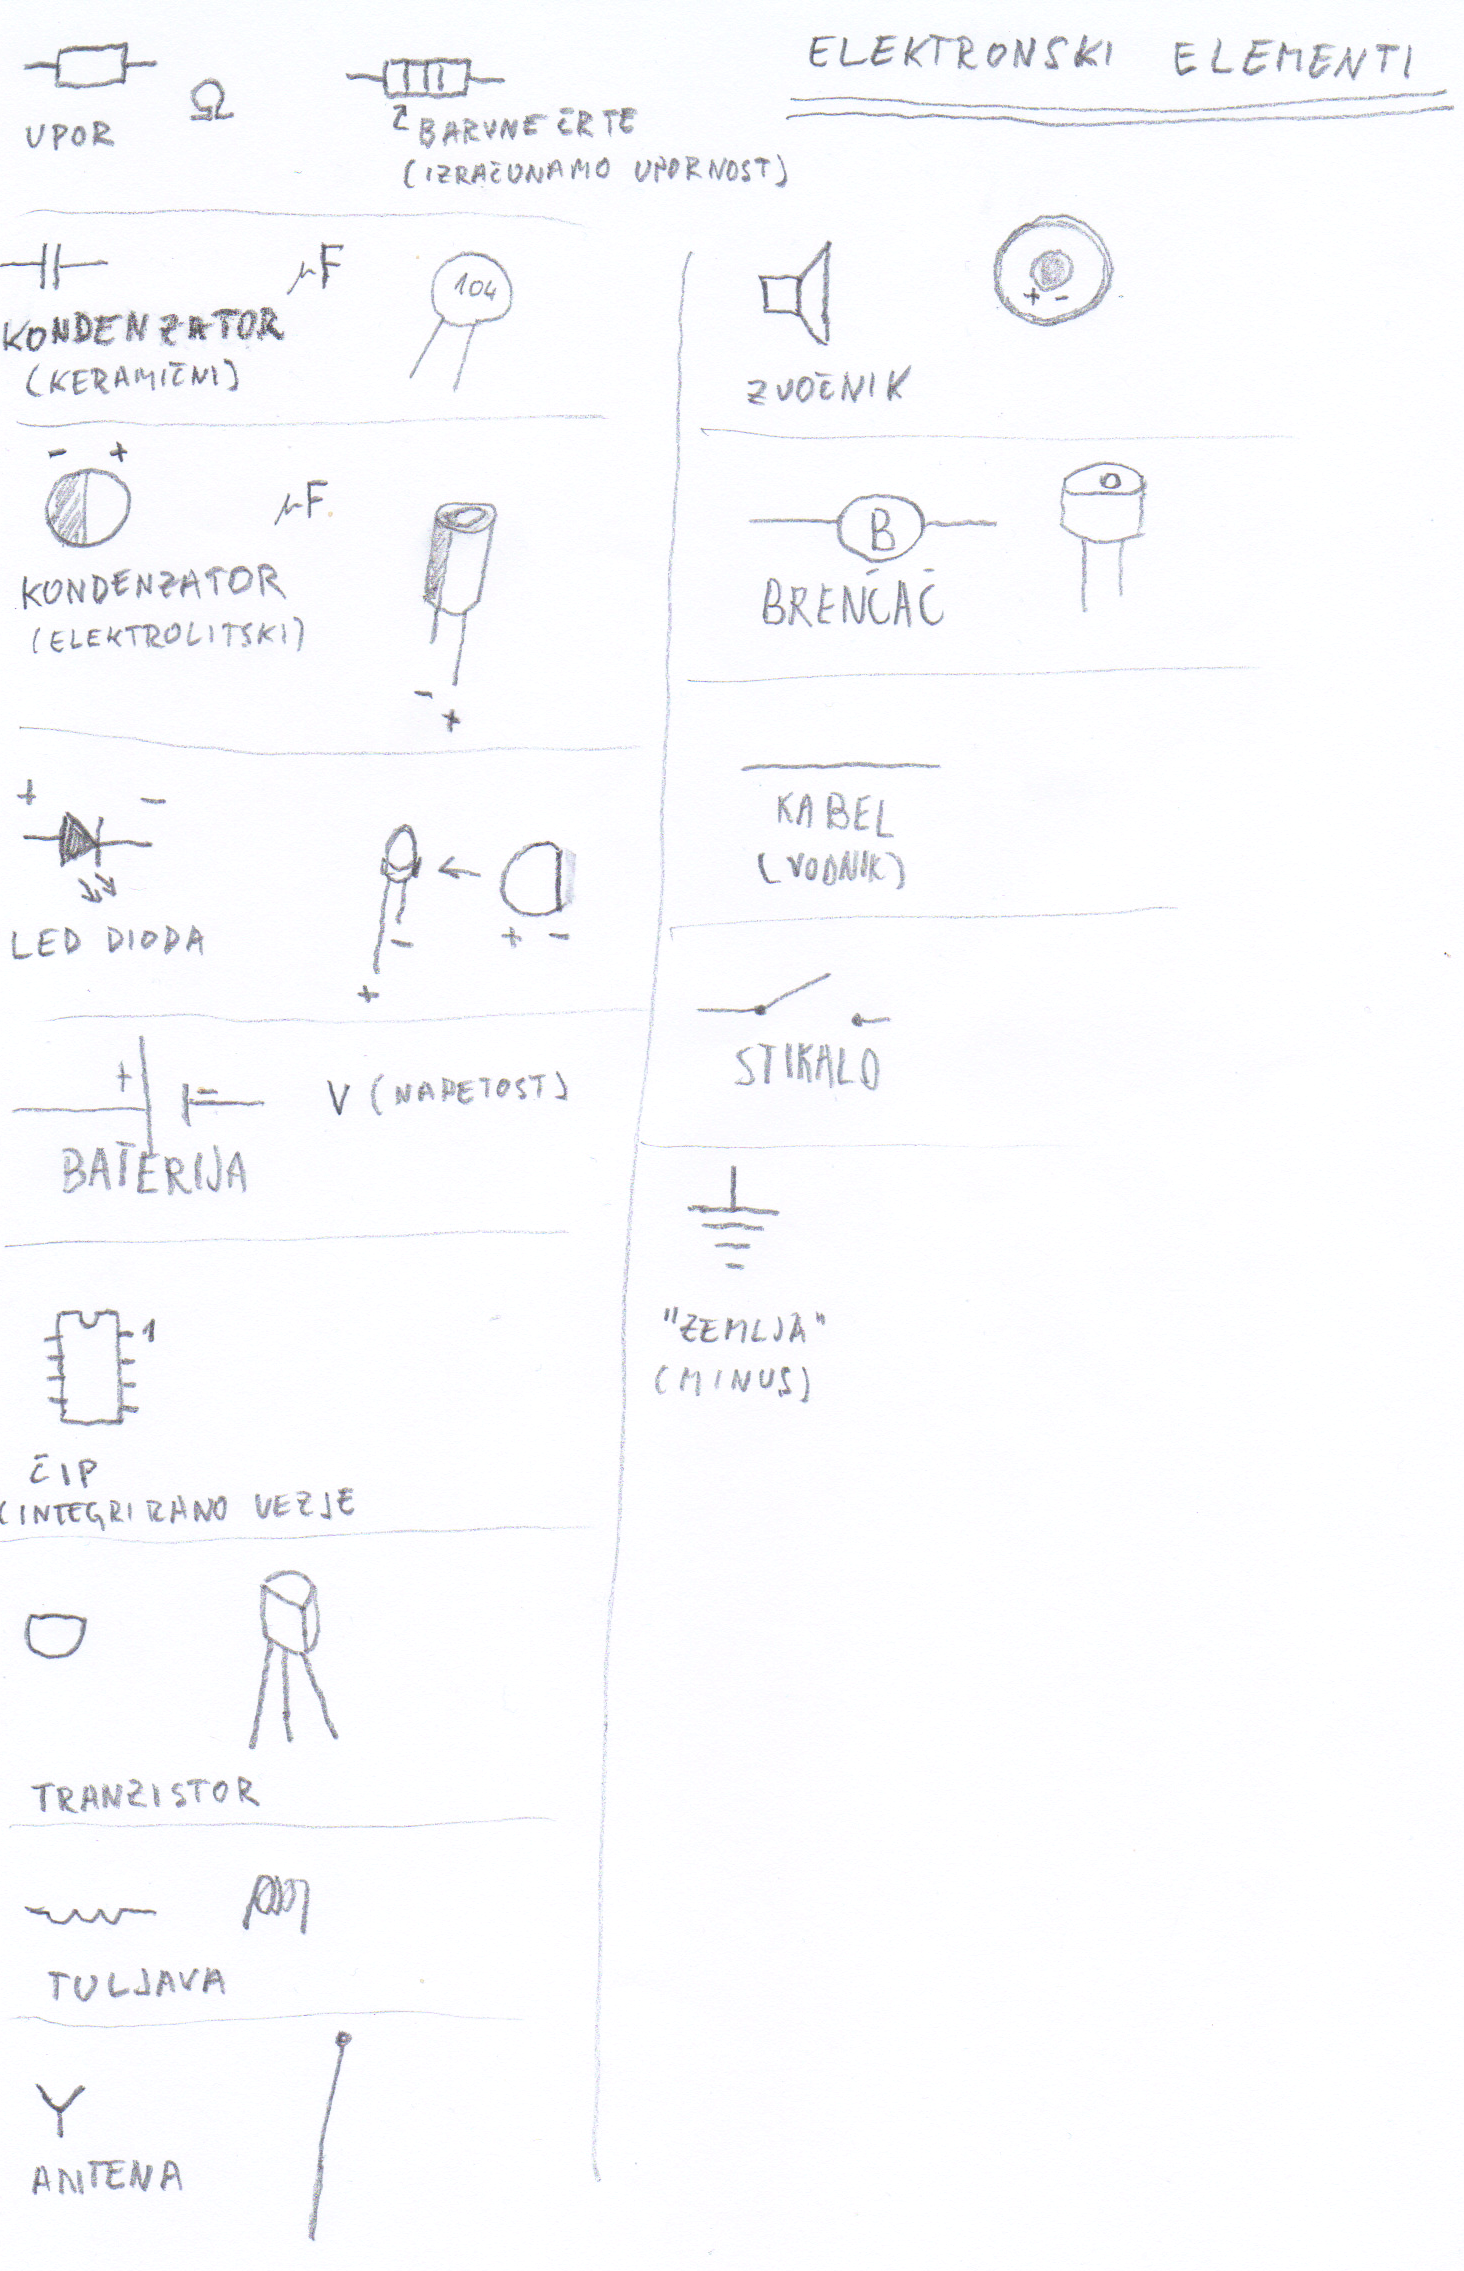 ELEKTRONSKI ELEMENTI
Ω
UPOR
BARVNE ČRTE
(IZRAČUNAMO UPORNOST)
μF
104
KONDENZATOR
(KERAMIČNI)
- +
μF
KONDENZATOR
(ELEKTROLITSKI)
-
+
+ -
LED DIODA
-
+
+ -
+ -
V (NAPETOST)
BATERIJA
1
ČIP
(INTEGRIRANO VEZJE
TRANZISTOR
TULJAVA
ANTENA
+ -
ZVOČNIK
B
BRENČAČ
KABEL
(VODNIK)
STIKALO
"ZEMLJA"
(MINUS)